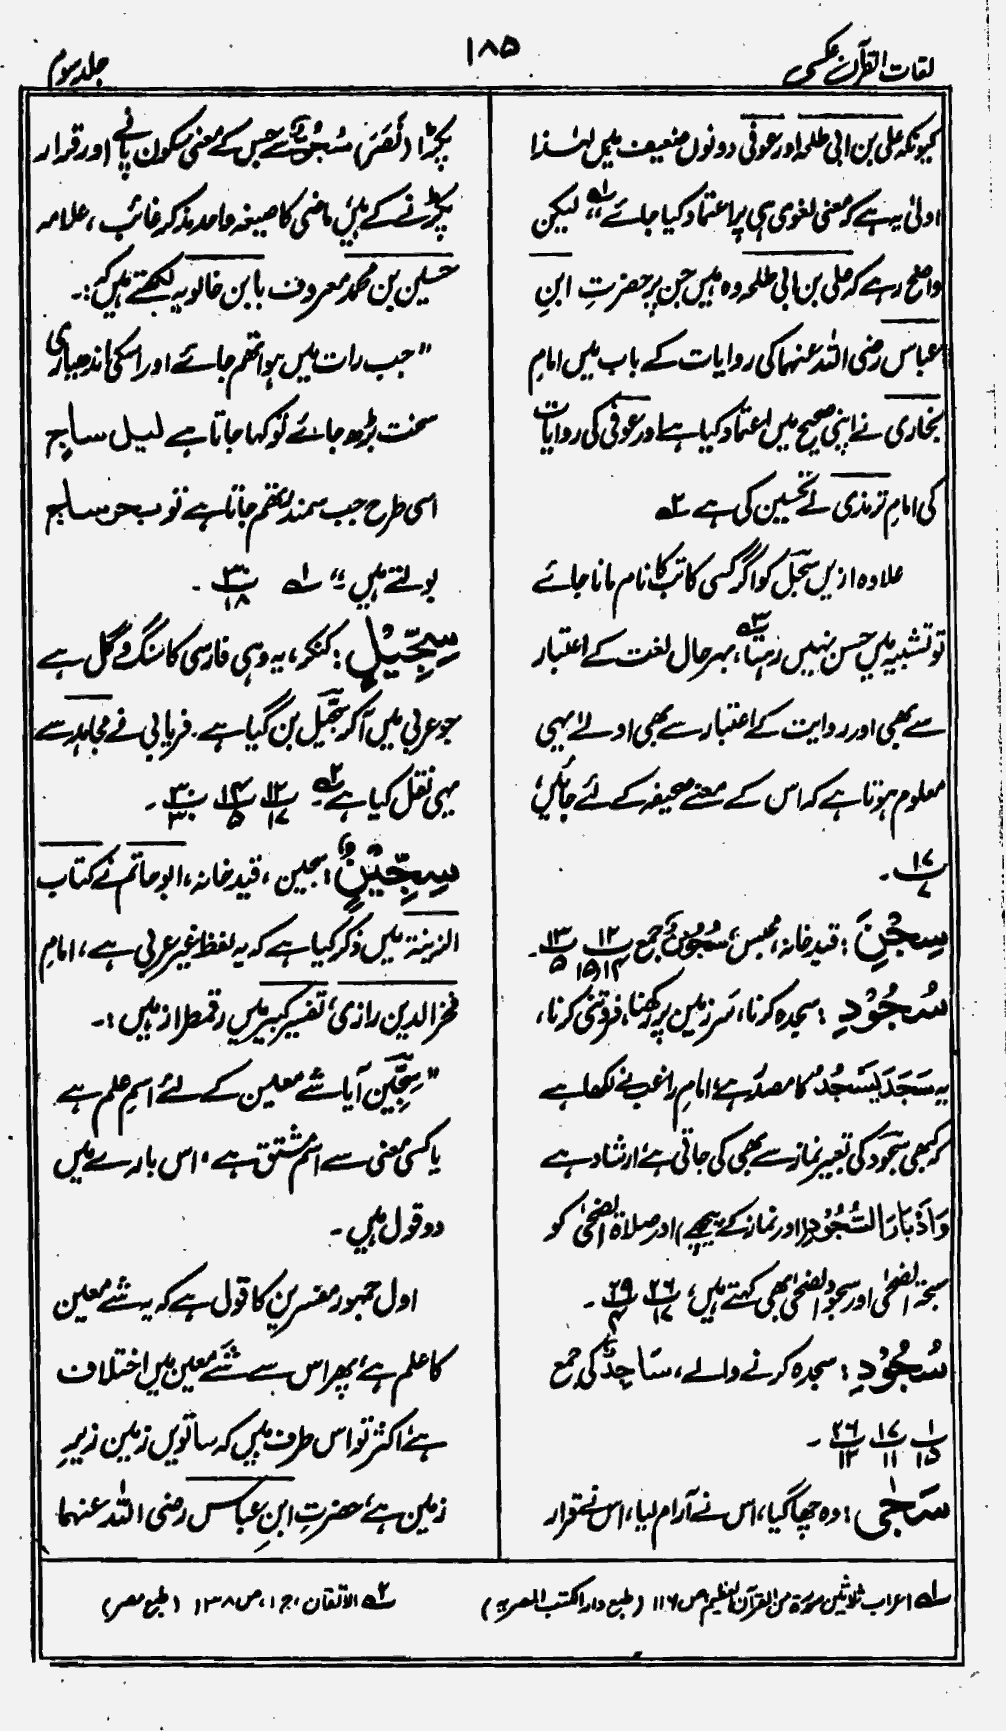 لغات القرآن عکسی
۱۸۵
جلد سوم
کیونکہ علی بن ابی طلحہ اور عوفی دونوں ضعیف ہیں لہٰذا
اولیٰ یہ ہے کہ معنی لغوی ہی پر اعتماد کیا جائے"، لیکن
واضح رہے کہ علی بن ابی طلحہ وہ ہیں جن پر حضرتِ ابنِ
عباس رضی اللہ عنہما کی روایات کے باب میں امام
بخاری نے اپنی صحیح میں اعتماد کیا ہے اور عوفی کی روایات
کی امام ترمذی نے تحسین کی ہے
علاوہ ازیں سجل کو اگر کسی کاتب کا نام مانا جائے
تو تشبیہ میں حسن نہیں رہتا، بہر حال لغت کے اعتبار
سے بھی اور روایت کے اعتبار سے بھی اولے یہی
معلوم ہوتا ہے کہ اس کے معنے صحیفہ کے لئے جائیں،
۱۷
۷ ۔
سِجْنِ : قید خانہ، محبس، سُجُوْنٌ جمع ۱۲ ۱۳
۱۵٬۱۴ ۵ ۔
سُجُوْدِ : سجدہ کرنا، سر زمین پر رکھنا، فروتنی کرنا،
یہ سَجَدَ یَسْجُدُ کا مصدر ہے، امام راغب نے لکھا ہے
کہ کبھی سجود کی تعبیر نماز سے بھی کی جاتی ہے، ارشاد ہے
وَاَدْبَارَ السُّجُوْدِ (اور نماز کے پیچھے) اور صلاۃ الضحیٰ کو
سبحۃ الضحیٰ اور سجود الضحیٰ بھی کہتے ہیں، ۲۶ ۲۹
۱۷ ۔
سُجُوْدِ : سجدہ کرنے والے، سَاجِدٌ کی جمع
۱ ۱۷ ۲۶
۱۵ ۱۱ ۱۲ ۔
سَجٰی : وہ چھا گیا، اس نے آرام لیا، اس نے قرار
پکڑا (نَصَرَ) سُجُوٌّ سے جس کے معنی سکون پانے اور قرار
پکڑنے کے ہیں، ماضی کا صیغہ واحد مذکر غائب، علامہ
حسین بن محمد معروف بابن خالویہ لکھتے ہیں کہ :۔
"جب رات میں ہوا تھم جائے اور اسکی اندھیاری
سخت بڑھ جائے تو کہا جاتا ہے لیل ساجٍ
اسی طرح جب سمندر تھم جاتا ہے تو بحر ساجٍ
بولتے ہیں"، ۱ ۳۰
۱۸ ۔
سِجِّیْلٍ : کنکر، یہ وہی فارسی کا سنگ و گل ہے
جو عربی میں آکر سجّیل بن گیا ہے۔ فریابی نے مجاہد سے
یہی نقل کیا ہے ۲ ۱۲ ۱۴ ۳۰
۱۷ ۵ ۳۰ ۔
سِجِّیْنٌ : سجین، قید خانہ، ابو حاتم نے کتاب
الزینۃ میں ذکر کیا ہے کہ یہ لفظ غیر عربی ہے، امام
فخر الدین رازی، تفسیر کبیر میں رقمطراز ہیں :۔
"سِجِّیْن آیا شے معین کے لئے اسمِ علم ہے
یا کسی معنی سے اسم مشتق ہے، اس بارے میں
دو قول ہیں ۔
اول جمہور مفسرین کا قول ہے کہ یہ شے معین
کا علم ہے، پھر اس سے شے معین میں اختلاف
ہے، اکثر تو اس طرف ہیں کہ ساتویں زمین زیرِ
زمین ہے، حضرتِ ابنِ عباس رضی اللہ عنہما
۱ اعراب ثلاثین سورۃ من القرآن العظیم ص ۱۱۶ (طبع دار الکتب المصریہ)
۲ الاتقان، ج ۱، ص ۱۳۸ (طبع مصر)